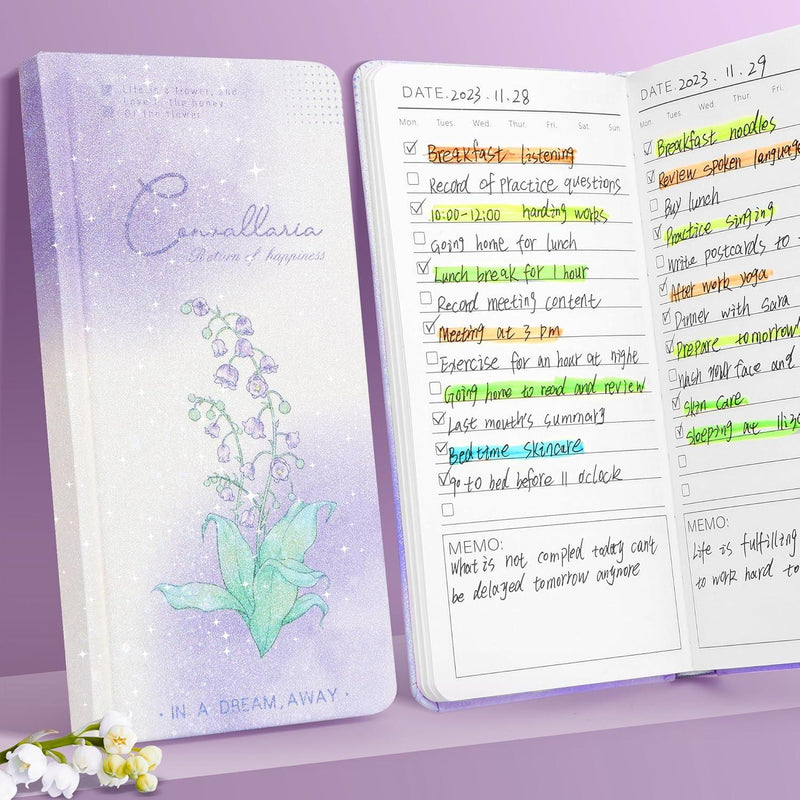 Life is a flower, and
Love is the honey
Of the flower
Convallaria
Return of happiness
· IN A DREAM, AWAY ·
DATE. 2023. 11. 28
Mon. Tues. Wed. Thur. Fri. Sat. Sun.
Breakfast listening
Record of practice questions
10:00-12:00 harding works
Going home for lunch
Lunch break for 1 hour
Record meeting content
Meeting at 3 pm
Exercise for an hour at night
Going home to read and review
Last mouth's summary
Bedtime skincare
go to bed before 11 o'clock
MEMO:
What is not compled today can't
be delayed tomorrow anynore
DATE. 2023. 11. 29
Mon. Tues. Wed. Thur. Fri.
Breakfast noodles
Review spoken language
Buy lunch
Practice singing
Write postcards to
After work yoga
Dinner with Sara
Prepare tomorrow'
Wash your face and
Skin care
Sleeping at 11:30
MEMO:
Life is fulfilling
to work hard to